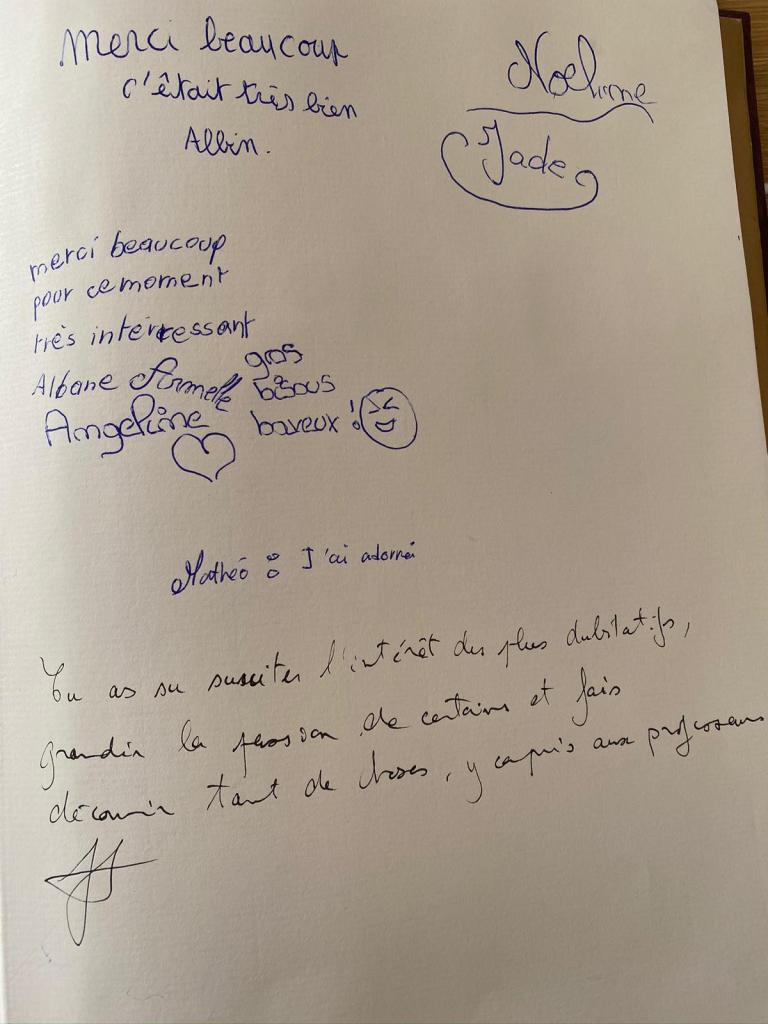 Merci beaucoup
c'était très bien
Albin.
Noëlime
Jade
merci beaucoup
pour ce moment
très intérressant
Albane Armelle gros
bisous
Angeline baveux !
Mathéo : J'ai adorné
Tu as su susciter l'intérêt des plus dubitatifs,
grandir la passion de certains et fais
découvrir tant de choses, y compris aux professeurs